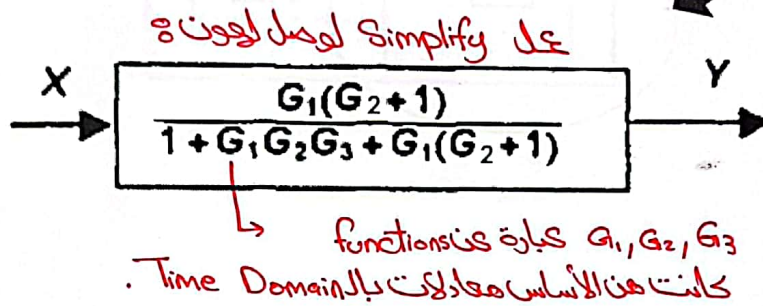 عمل Simplify لوصل لهون :
X
Y
G₁(G₂+1)
1+G₁G₂G₃+G₁(G₂+1)
G₁,G₂,G₃ عبارة عن functions
كانت من الأساس معادلات بالـ Time Domain.